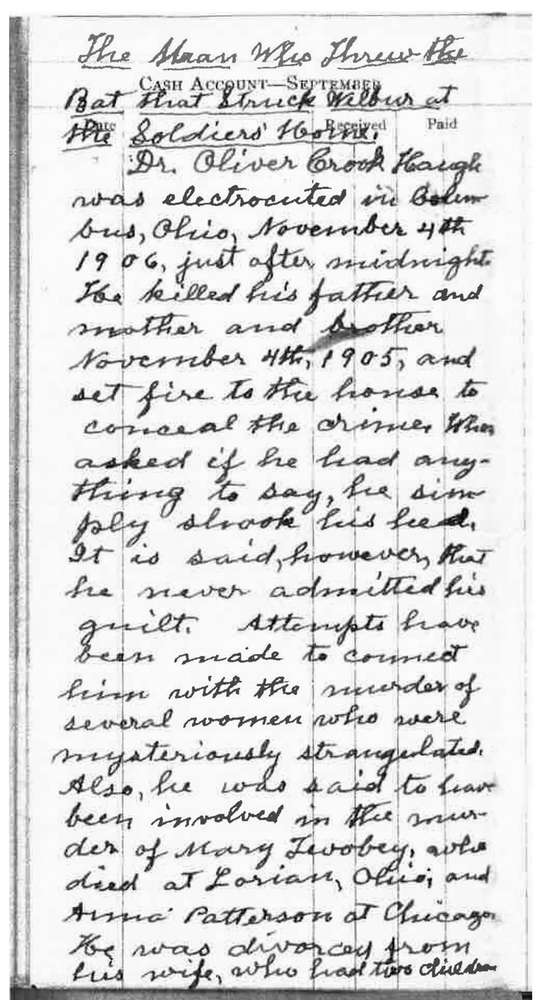 The Man Who Threw the
CASH ACCOUNT—SEPTEMBER
Bat that Struck Wilbur at
Date Received Paid
the Soldiers' Home.
Dr. Oliver Crook Haugh
was electrocuted in Colum-
bus, Ohio, November 4th
1906, just after midnight.
He killed his father and
mother and brother
November 4th, 1905, and
set fire to the house to
conceal the crime. When
asked if he had any-
thing to say, he sim-
ply shook his head.
It is said, however, that
he never admitted his
guilt. Attempts have
been made to connect
him with the murder of
several women who were
mysteriously strangulated.
Also, he was said to have
been involved in the mur-
der of Mary Twobey, who
died at Lorian, Ohio, and
Anna Patterson at Chicago.
He was divorcey from
his wife, who had two children